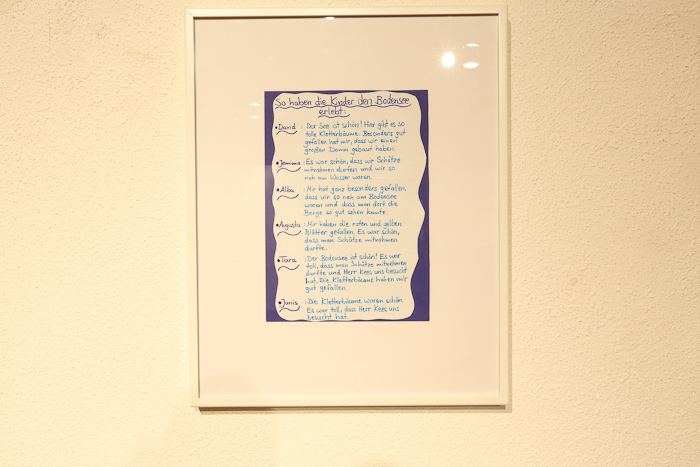 So haben die Kinder den Bodensee
erlebt:
• David : Der See ist schön! Hier gibt es so
tolle Kletterbäume. Besonders gut
gefallen hat mir, dass wir einen
großen Damm gebaut haben.
• Jemima : Es war schön, dass wir Schätze
mitnehmen durften und wir so
nah am Wasser waren.
• Alba : Mir hat ganz besonders gefallen,
dass wir so nah am Bodensee
waren und dass man dort die
Berge so gut sehen konnte.
• Augusta : Mir haben die roten und gelben
Blätter gefallen. Es war schön,
dass man Schätze mitnehmen
durfte.
• Tara : Der Bodensee ist schön! Es war
toll, dass man Schätze mitnehmen
durfte und Herr Kees uns besucht
hat. Die Kletterbäume haben mir
gut gefallen.
• Janis : Die Kletterbäume waren schön.
Es war toll, dass Herr Kees uns
besucht hat.